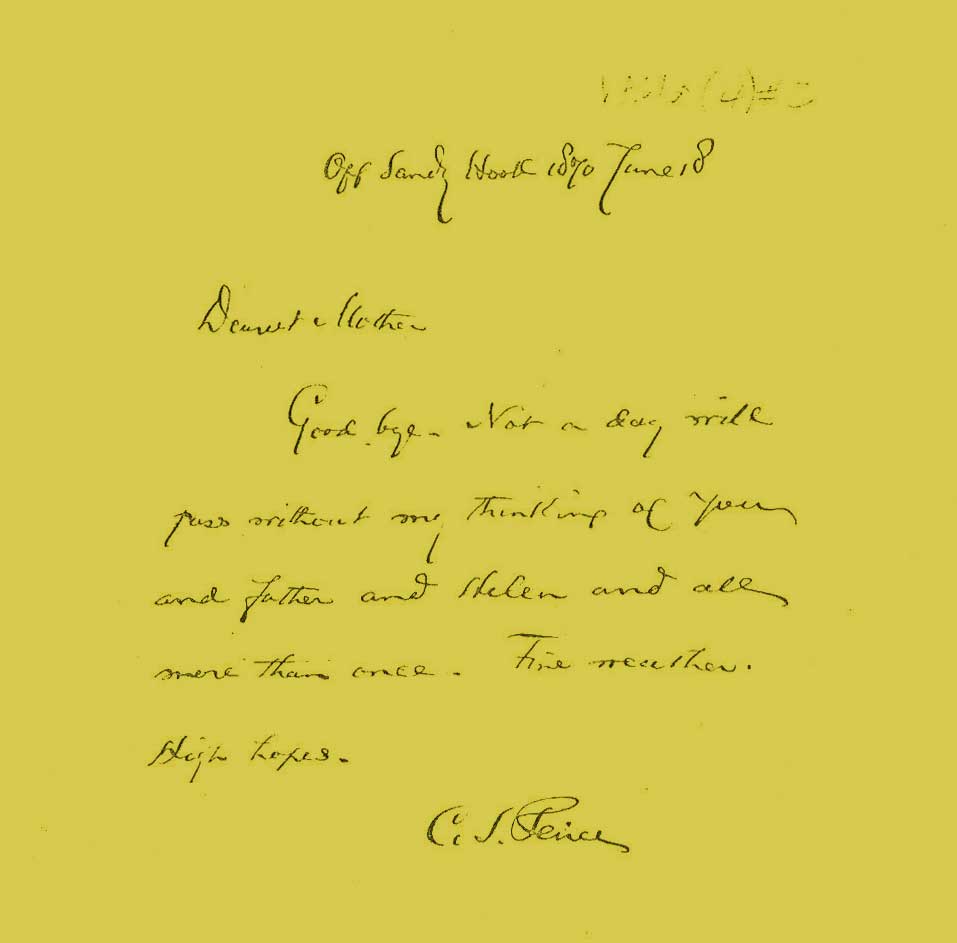 Off Sandy Hook 1870 June 18
Dearest Mother
Good bye. Not a day will
pass without my thinking of you
and father and Helen and all
more than once. Fine weather.
High hopes.
C. S. Peirce